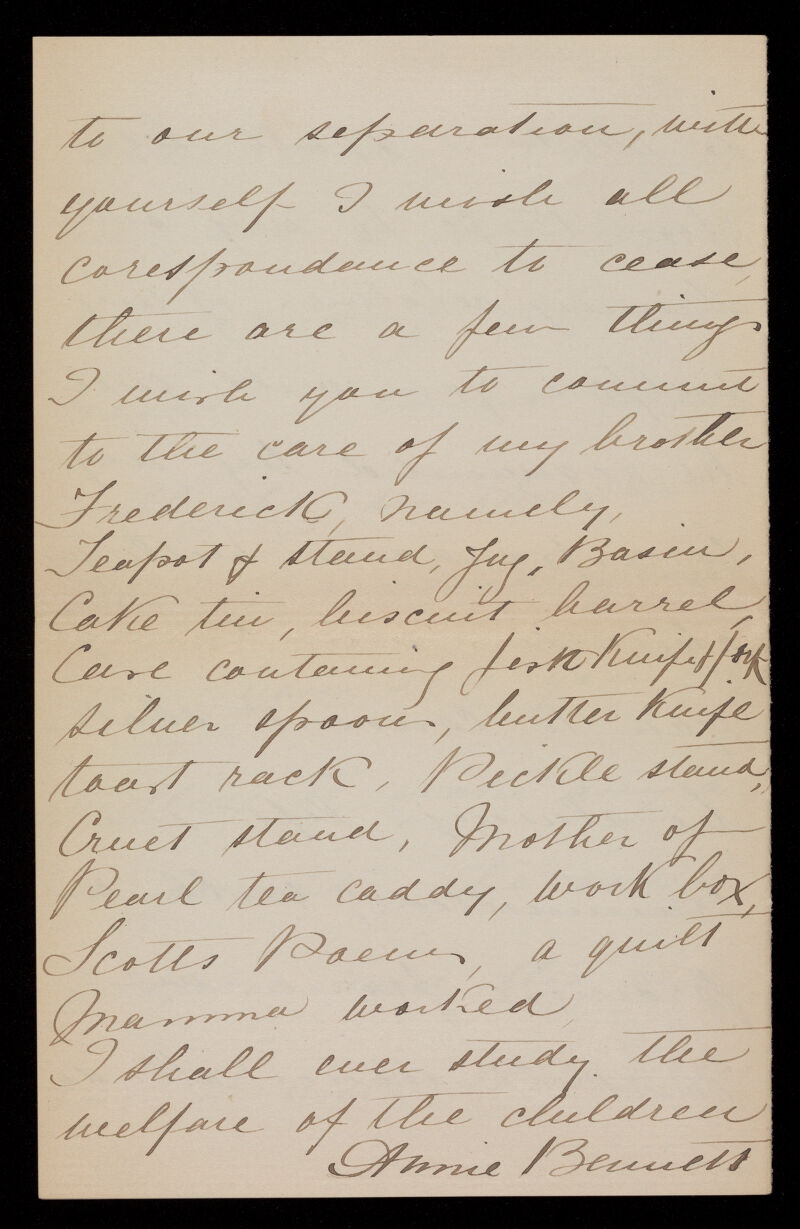 to our separation, with
yourself I wish all
corespondance to cease,
there are a few things
I wish you to commit
to the care of my brother
Frederick, namely,
Teapot & stand, Jug, Basin,
Cake tin, biscuit barrel,
Case containing fish Knife & fork
silver spoons, butter Knife
toast rack, Pickle stand,
Cruet stand, Mother of
Pearl tea caddy, work box,
Scotts Poems, a quilt
Mamma worked,
I shall ever study the
welfare of the children
Annie Bennett